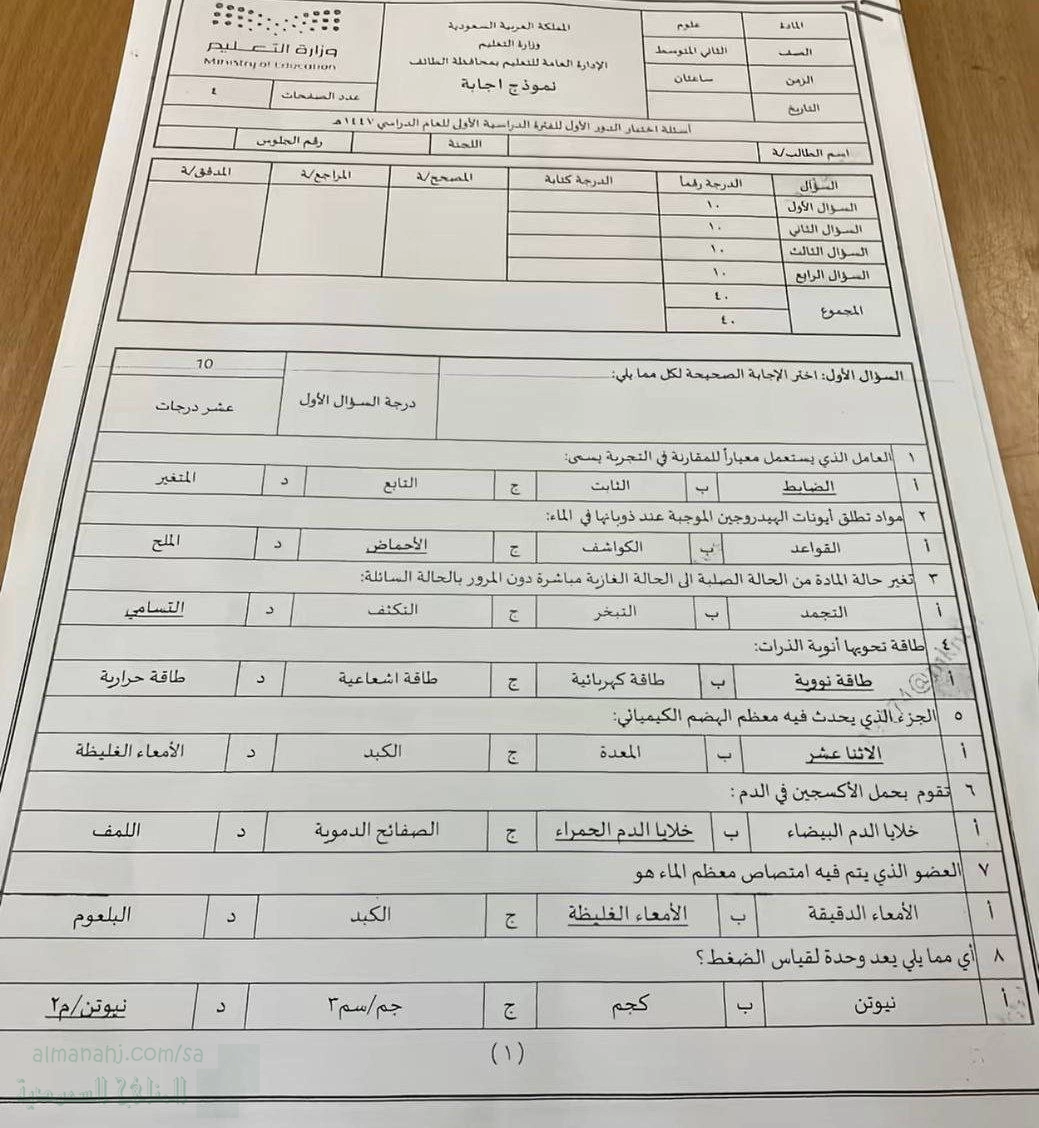 المملكة العربية السعودية
وزارة التعليم
الإدارة العامة للتعليم بمحافظة الطائف
نموذج اجابة
المادة علوم
الصف الثاني المتوسط
الزمن ساعتان
التاريخ
وزارة التعليم
Ministry of Education
عدد الصفحات ٤
أسئلة اختبار الدور الأول للفترة الدراسية الأولى للعام الدراسي ١٤٤٧هـ
اسم الطالب/ة اللجنة رقم الجلوس
السؤال الدرجة رقماً الدرجة كتابة المصحح/ة المراجع/ة المدقق/ة
السؤال الأول ١٠
السؤال الثاني ١٠
السؤال الثالث ١٠
السؤال الرابع ١٠
المجموع ٤٠
٤٠
السؤال الأول: اختر الإجابة الصحيحة لكل مما يلي: درجة السؤال الأول 10
عشر درجات
١ العامل الذي يستعمل معياراً للمقارنة في التجربة يسمى:
أ الضابط ب الثابت ج التابع د المتغير
٢ مواد تطلق أيونات الهيدروجين الموجبة عند ذوبانها في الماء:
أ القواعد ب الكواشف ج الأحماض د الملح
٣ تغير حالة المادة من الحالة الصلبة الى الحالة الغازية مباشرة دون المرور بالحالة السائلة:
أ التجمد ب التبخر ج التكثف د التسامي
٤ طاقة تحويها أنوية الذرات:
أ طاقة نووية ب طاقة كهربائية ج طاقة اشعاعية د طاقة حرارية
٥ الجزء الذي يحدث فيه معظم الهضم الكيميائي:
أ الاثنا عشر ب المعدة ج الكبد د الأمعاء الغليظة
٦ تقوم بحمل الأكسجين في الدم:
أ خلايا الدم البيضاء ب خلايا الدم الحمراء ج الصفائح الدموية د اللمف
٧ العضو الذي يتم فيه امتصاص معظم الماء هو
أ الأمعاء الدقيقة ب الأمعاء الغليظة ج الكبد د البلعوم
٨ أي مما يلي يعد وحدة لقياس الضغط؟
أ نيوتن ب كجم ج جم/سم٣ د نيوتن/م٢
(١)
almanahj.com/sa
المناهج السعودية